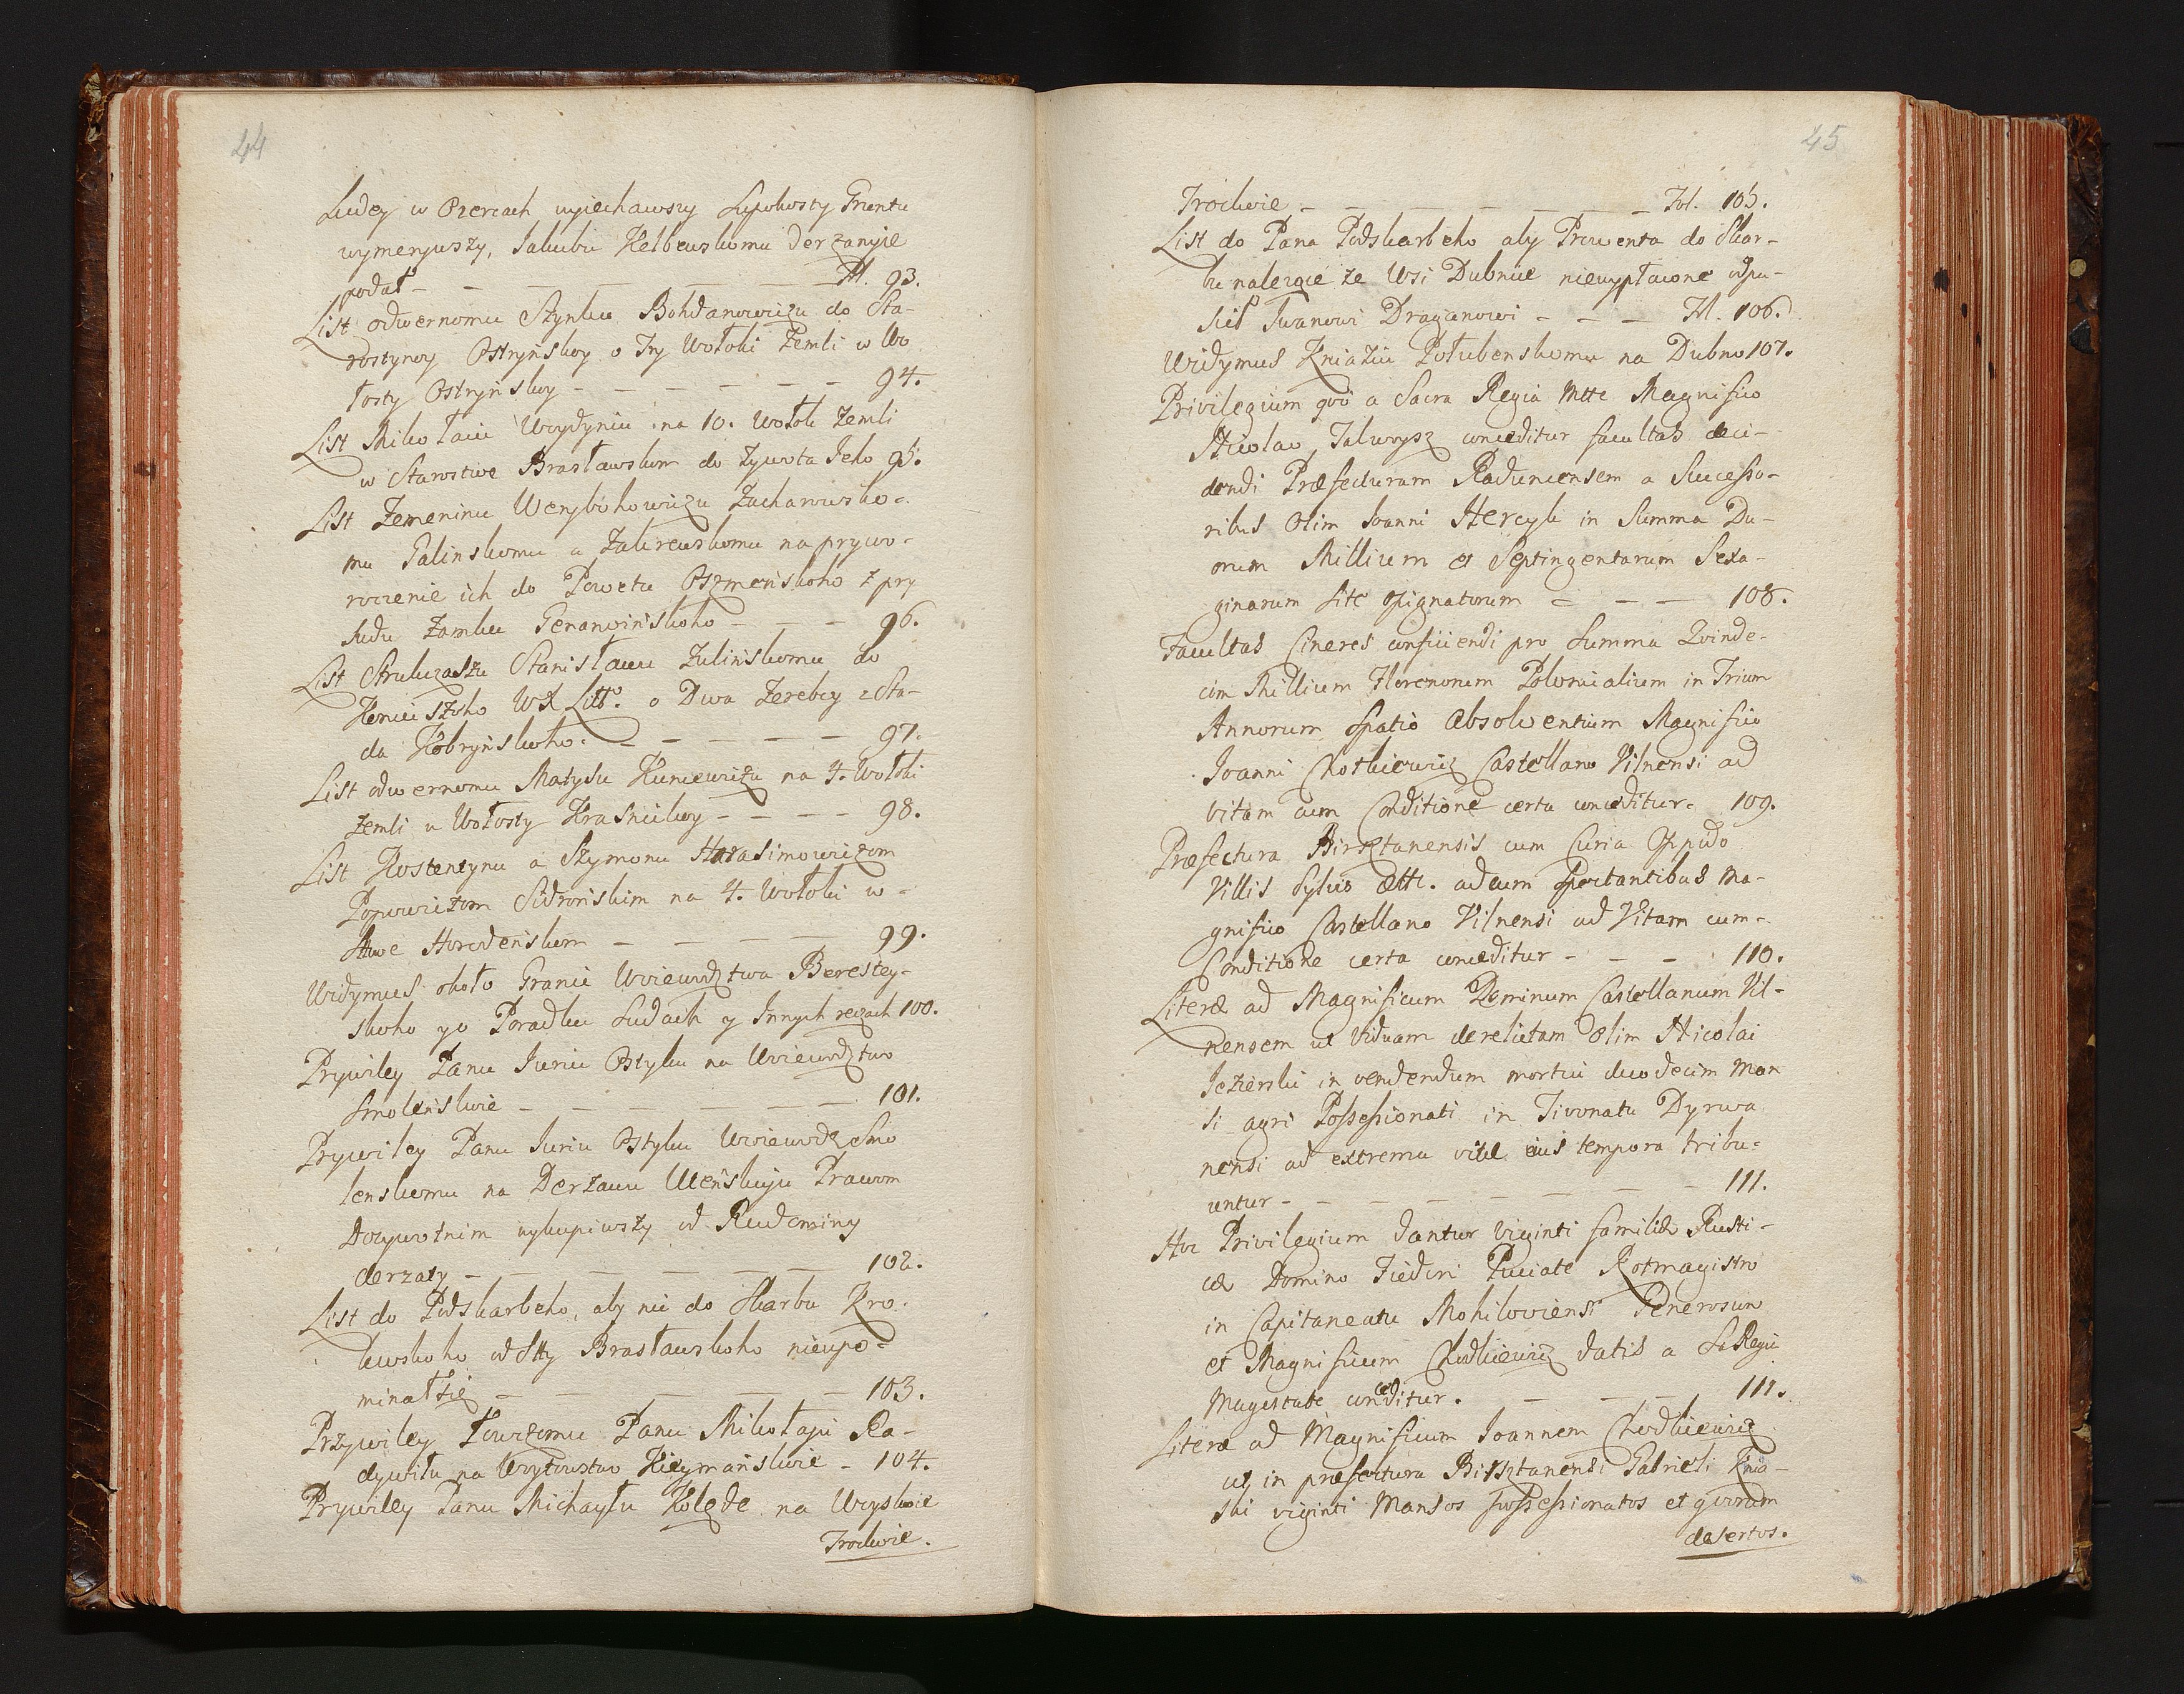 44
Ludey w Ozercach wyiechawszy Supolwosty Gruntu
wymeryuszy, Jakubu Kelbowskomu derzanyie
podał - Fol. 93.
List odwernomu Stynku Bohdanowiczu do Sta-
rostynoy Ostryńskoy o Try Wołoki Zemli w Wo
łosty Ostryńskoy - 94.
List Mikołaiu Woydyniu na 10. Wołok Zemli
w Starostwe Brasławskom do Zywota Jeho 95.
List Zemeninu Werybohowiczu Zacharewsko-
mu Galinskomu a Zakrewskomu na prywo-
roczenie ich do Powetu Oszmeńskoho z pry
sudu Zamku Geranoińskoho - 96.
List Strukczaszu Stanisławu Zulińskomu do
Koniuszoho WX Litto. o Dwa Zerebcy z Sta-
da Kobryńskoho. - 97.
List odwernomu Matysu Kuncewiczu na 4. Wołoki
Zemli u Wołosty Krasnickoy - 98.
List Kostentynu a Szymonu Harasimowiczom
Popowiczom Sidrońskim na 4. Wołoki w-
Sttwe Horodeńskom - 99.
Widymus około Granic Woiewodztwa Berestey-
skoho y o Poradku Sudach y Innych reczach 100.
Prywiley Panu Juriu Ostyku na Woiewodztwo
Smoleńskie - 101.
Prywiley Panu Juriu Ostyku Woiewodz Smo
lenskomu na Derzawu Uceńskuju Prawom
Dozywotnim wykupiwszy od Rudominy
derzaty - 102.
List do Podskarbeho, aby nic do Skarbu Kro-
lewskoho od Stty Brasławskoho nieupo-
minał się - 103.
Przywiley Łowczomu Panu Mikołaju Ra-
dywiłu na Woytowstwo Kieymańskie - 104.
Prywiley Panu Michayłu Kolęde na Woyskie
Trockie.
45
Trockie - Fol. 105.
List do Pana Podskarbeho aby Prowenta do Skar-
bu nalezące ze Wsi Dubnice niewypłacone odpu-
scił Iwanowi Draganowi - Fol. 106.
Widymus Kniaziu Połubenskomu na Dubno 107.
Privilegium quo a Sacra Regia Mtte Magnifico
Nicolao Talwoysz conceditur facultas deci-
dendi Præfecturam Radunensem a Successo-
ribus Olim Joanni Hercyk in Summa Du-
orum Millium et Septingentarum Sexa-
ginarum Site opignatorum - 108.
Facultas Cineres conficiendi pro Summa Quinde-
cim Millium Florenorum Polonicalium in Trium
Annorum Spatio Absolventium Magnifico
Joanni Chotkiewicz Castellano Vilnensi ad
vitam cum Conditione certa conceditur. 109.
Præfectura Birsztanensis cum Curia Oppido
Villis Sylvis ette. ad eum spectantibus Ma-
gnifico Castellano Vilnensi ad Vitam cum-
Conditione certa conceditur - 110.
Literæ ad Magnificum Dominum Castellanum Vil-
nensem ut Viduam derelictam Olim Nicolai
Jezierski in vendendum mortui duodecim Man
si agri Possessionati in Tivonatu Dyrwa
nensi ad extrema vitæ eius tempora tribu-
untur - 111.
Hoc Privilegium dantur viginti familiæ Rusti-
cæ Domino Fiedori Puciate Rotmagistro
in Capitaneatu Mohiloviensi Generosum
et Magnificum Chodkiewicz datis a Sa Regia
Magestate conceditur. - 111.
Literæ ad Magnificum Joannem Chodkiewicz
ut in præfectura Birsztanensi Gabrieli Knia-
ski viginti Mansos possessionatos et quorum
desertos.